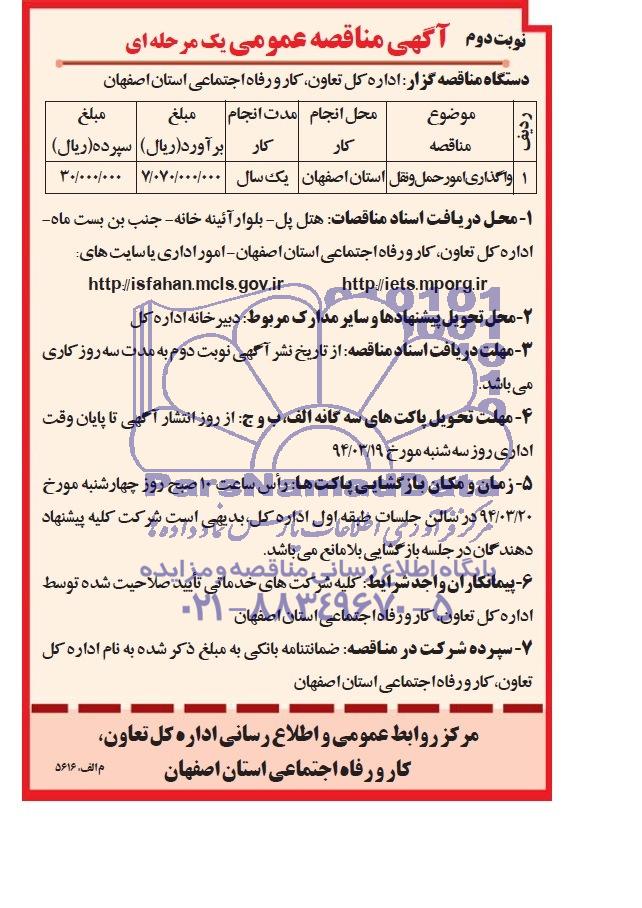 نوبت دوم آگهی مناقصه عمومی یک مرحله ای
دستگاه مناقصه گزار: اداره کل تعاون، کار و رفاه اجتماعی استان اصفهان
ردیف موضوع مناقصه محل انجام کار مدت انجام کار مبلغ برآورد(ریال) مبلغ سپرده(ریال)
۱ واگذاری امور حمل ونقل استان اصفهان یک سال ۷/۰۷۰/۰۰۰/۰۰۰ ۳۰/۰۰۰/۰۰۰
۱- محل دریافت اسناد مناقصات: هتل پل- بلوار آئینه خانه- جنب بن بست ماه-
اداره کل تعاون، کار و رفاه اجتماعی استان اصفهان- امور اداری یا سایت های:
http://iets.mporg.ir http://isfahan.mcls.gov.ir
۲- محل تحویل پیشنهادها و سایر مدارک مربوط: دبیرخانه اداره کل
۳- مهلت دریافت اسناد مناقصه: از تاریخ نشر آگهی نوبت دوم به مدت سه روز کاری
می باشد.
۴- مهلت تحویل پاکت های سه گانه الف، ب و ج: از روز انتشار آگهی تا پایان وقت
اداری روز سه شنبه مورخ ۹۴/۰۳/۱۹
۵- زمان و مکان بازگشایی پاکت ها: رأس ساعت ۱۰ صبح روز چهارشنبه مورخ
۹۴/۰۳/۲۰ در سالن جلسات طبقه اول اداره کل، بدیهی است شرکت کلیه پیشنهاد
دهندگان در جلسه بازگشایی بلامانع می باشد.
۶- پیمانکاران واجد شرایط: کلیه شرکت های خدماتی تأیید صلاحیت شده توسط
اداره کل تعاون، کار و رفاه اجتماعی استان اصفهان
۷- سپرده شرکت در مناقصه: ضمانتنامه بانکی به مبلغ ذکر شده به نام اداره کل
تعاون، کار و رفاه اجتماعی استان اصفهان
مرکز روابط عمومی و اطلاع رسانی اداره کل تعاون،
کار و رفاه اجتماعی استان اصفهان
م الف، ۵۶۱۶
ParsNamadData
مرکز فرآوری اطلاعات پارس نماد داده ها
پایگاه اطلاع رسانی مناقصه و مزایده
۰۲۱-۸۸۳۴۹۶۷۰-۵